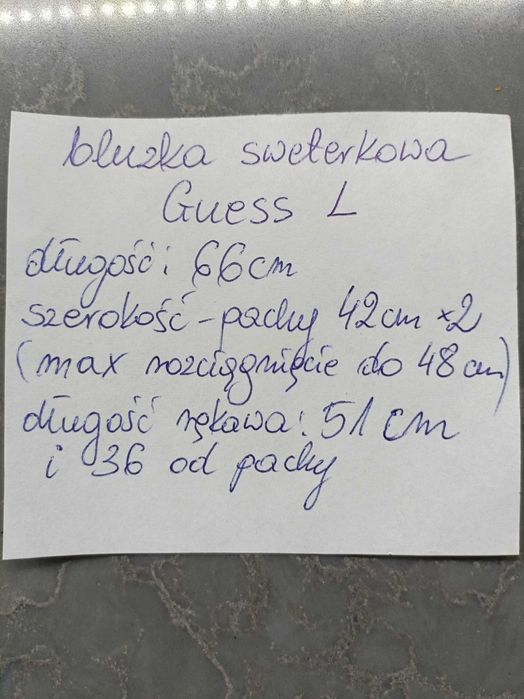 bluzka sweterkowa
Guess L
długość: 66cm
szerokość - pachy 42cm x2
(max rozciągnięcie do 48cm)
długość rękawa: 51 cm
i 36 od pachy